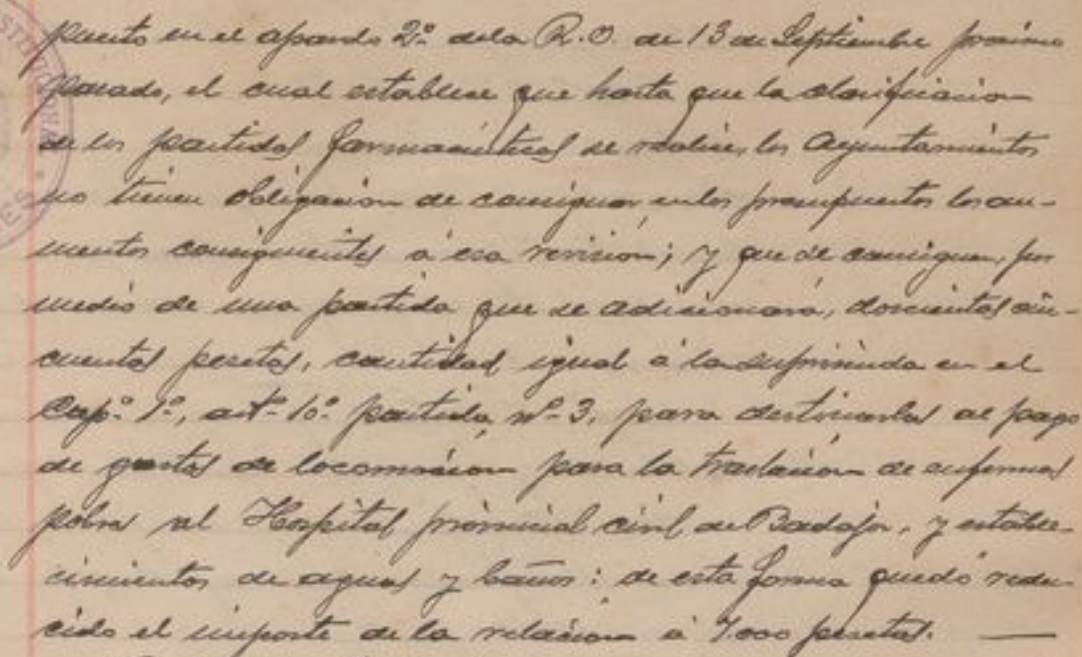 puesto en el apartado 2º de la R.O. de 13 de Septiembre próximo
pasado, el cual establece que hasta que la clasificacion
de los partidos farmacéuticos se realice, los Ayuntamientos
no tienen obligacion de consignar en los presupuestos los au-
mentos consiguientes á esa revision; y que se consiguen, por
medio de una partida que se adicionará, doscientas cin-
cuenta pesetas, cantidad igual á la suprimida en el
Cap.º 1º, art.º 10º partida nº 3, para destinarlas al pago
de gastos de locomocion para la traslacion de enfermos
pobres al Hospital provincial civil de Badajoz, y estable-
cimientos de aguas y baños: de esta forma quedó redu-
cido el importe de la relacion á 7.000 pesetas.